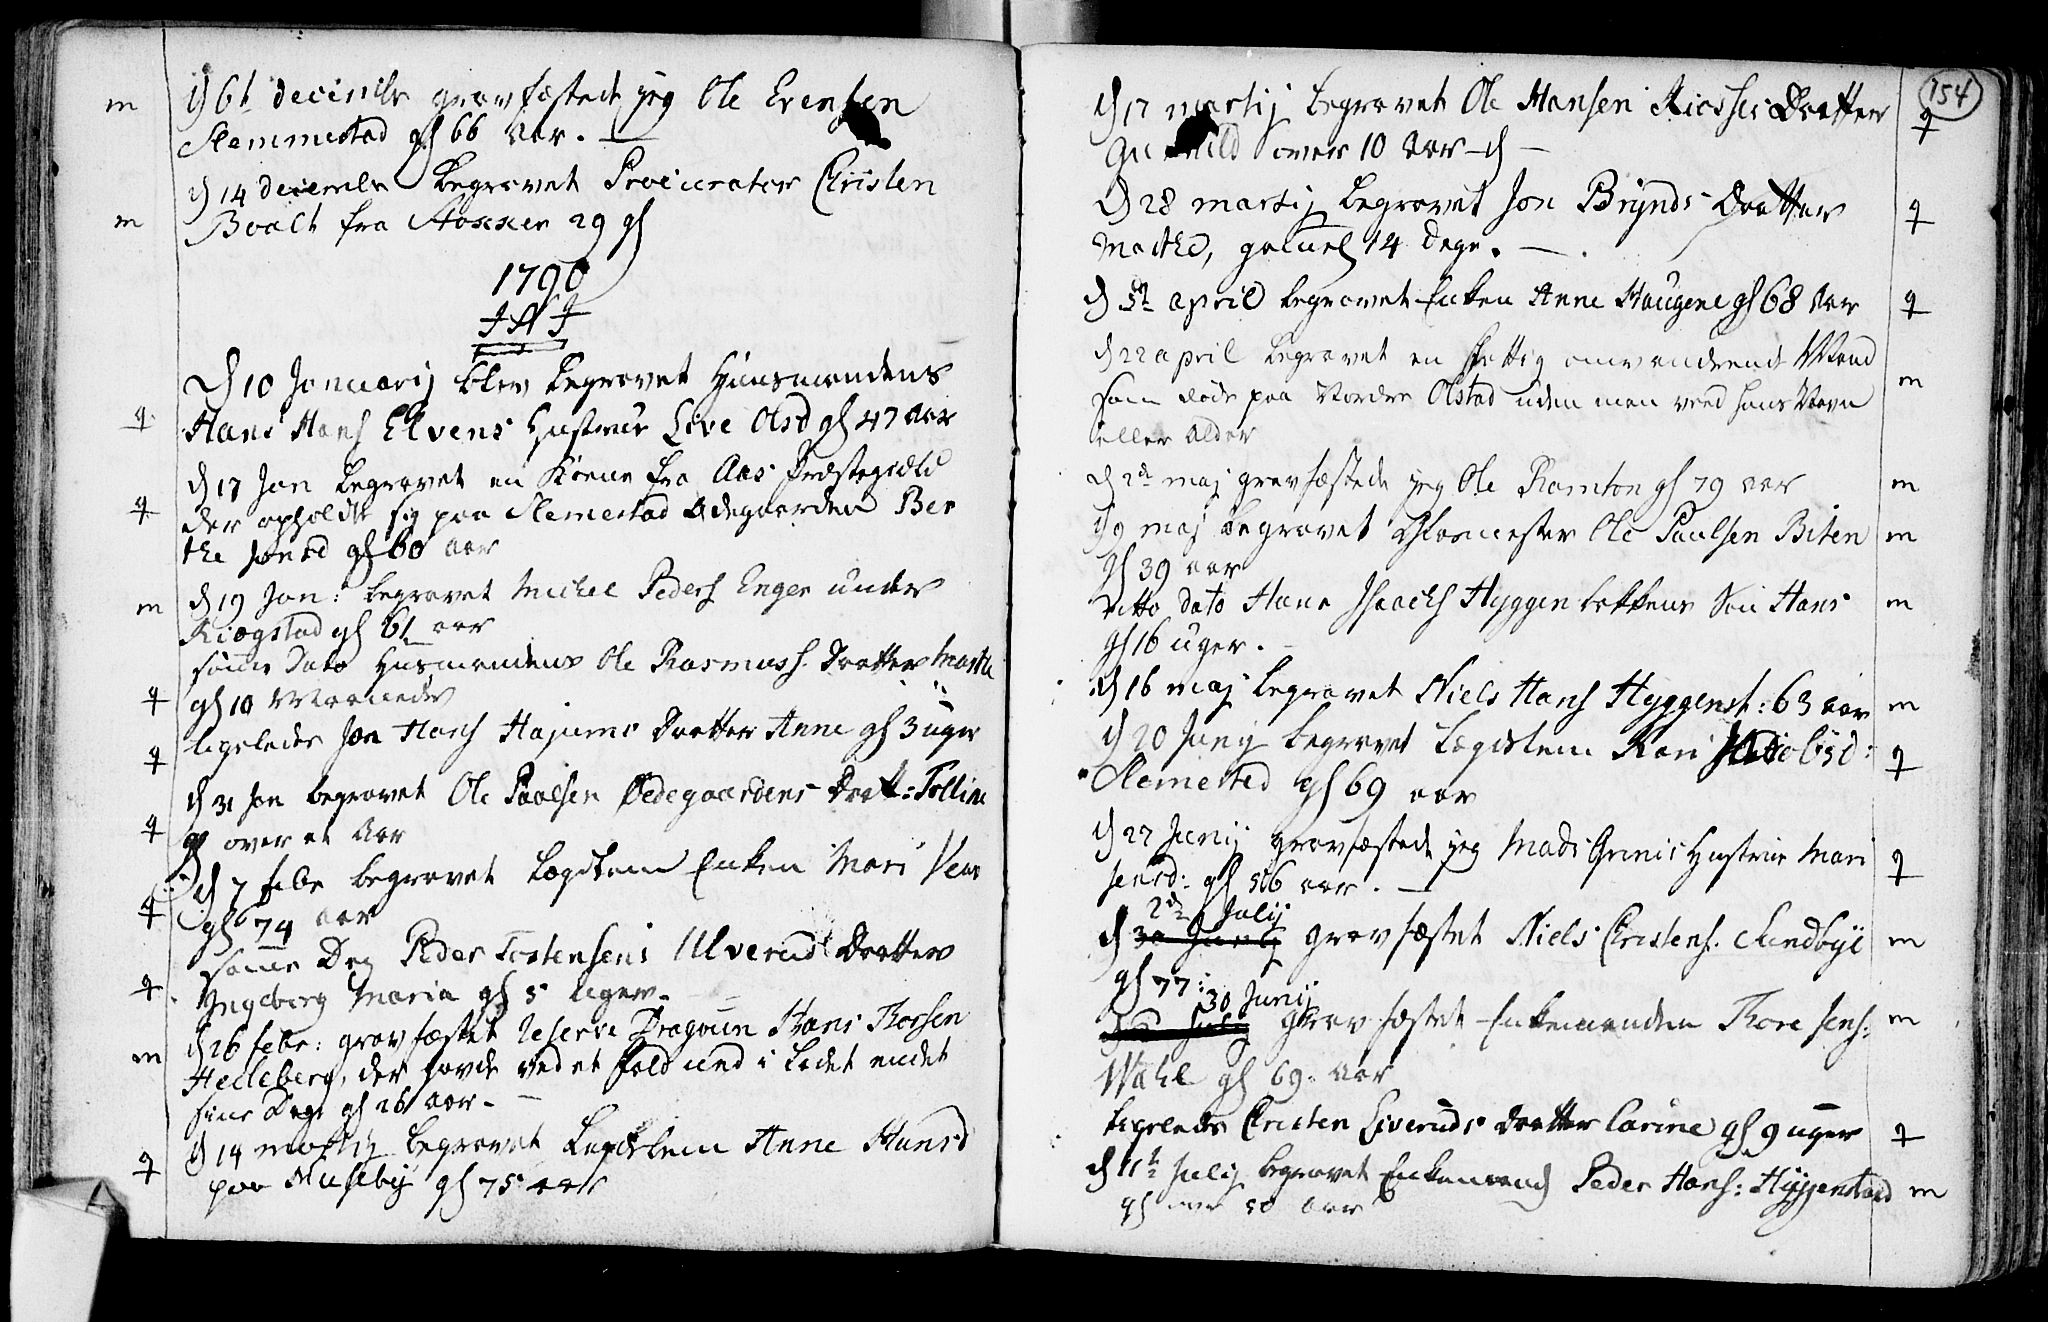 m d 6t decembr gravfæstede jeg Ole Evensen
Slemmestad gl 66 aar.
d 14 decembr begravet Procurator Christen
m Boalt fra Stokker 29 gl
1790
d 10 Januarij blev begravet Huusmandens
q Hans Hans Elvens Hustrue Live Olsd gl 47 aar
d 17 Jan begravet en Kone fra Aas Præstegield
q der opholdt sig paa Slemestad Ødegaarden Ber
the Jonsd gl 60 aar
m d 19 Jan: begravet Michel Peders Enger under
Kiøgstad gl 61 aar
samme Dato Husmandens Ole Rasmuss. Datter Marthe
q gl 10 Maaneder
q ligeledes Jon Hans Hajums Datter Anne gl 3 uger
d 31 Jan begravet Ole Paalsen Ødegaardens Datt: Tolline
q gl over et Aar
d 7 febr begravet Lægdslem Enken Mari
q gl 74 aar
samme Dag Peder Tostensens Ulverud Datter
q Yngeborg Maria gl 5 uger.
m d 26 febr: gravfæstet Reserve Dragoun Hans Thorsen
Helleberg, der havde ved et fald ned i Ladet endet
sine Dage gl 26 aar.
q d 14 martij begravet Legdslem Anne Hansd
paa Nuseby gl 75 aar
154
d 17 martij begravet Ole Hansen Datter q
Gu ild over 10 aar
d 28 martij begravet Jon Brynds Datter q
Marthe, gammel 14 dage.
d 5t april begravet Enken Anne Haugene gl 68 Aar q
d 22 april begravet en fattig omvandrende Mand
som døde paa Nordre Olstad uden man veed hans Navn m
eller alder
d 2de maj gravfæstede jeg Ole Ramton gl 79 aar m
d 9 maj begravet Glasmester Ole Paulsen Biten m
gl 39 aar
ditto dato Hans Isaachs Hyggen bakkens Søn Hans m
gl 16 uger.
d 16 maj begravet Niels Hans Hyggenst: 63 aar m
d 20 Junij begravet Lægdslem Kari Jacobsd: q
Slemested gl 69 aar
d 27 Junij gravfæstede jeg Mads Grinis Hustrue Mari q
Jensd: gl 56 aar.
2d Julij
d 30 Junij gravfæstet Niels Christens. Sundbye m
gl 77:
30 Junij
d 2 Julij gravfæstet Enkemanden Thore Jens: m
Wahl gl 69. aar
ligeledes Christen Liveruds datter Carine gl 9 uger q
d 11t Julij begravet Enkemand Peder Hans: Hyggenstad m
gl over 50 aar